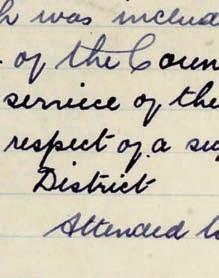 was includ
of the Coun
service of the
respect of a su
District
Attended